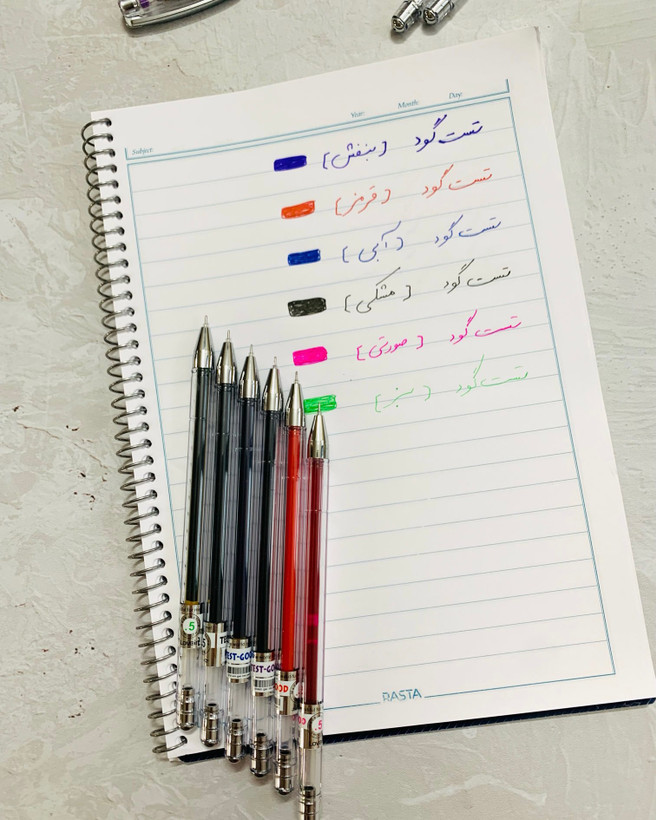 Subject: Year: Month: Day:
تست گود (بنفش)
تست گود (قرمز)
تست گود (آبی)
تست گود (مشکی)
تست گود (صورتی)
تست گود (سبز)
.5
TEST-GOOD
TEST-GO
OOD
.5
RASTA